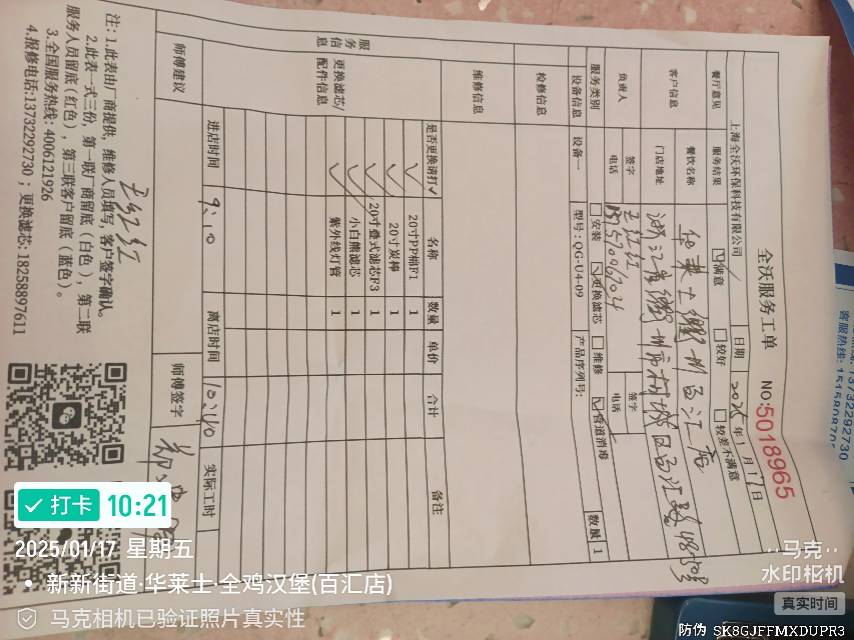 全沃服务工单
NO:5018965
上海全沃环保科技有限公司
日期 2025年1月17日
餐厅意见 服务结果 满意 较好 较差不满意
客户信息 餐饮名称 华莱士衢州百汇店
门店地址
负责人 签字 王红红 签字
电话 电话
服务类别 安装 更换滤芯 维修 管道消毒
设备信息 设备一 型号:QG-U4-09 产品序列号: 数量 1
检修信息
维修信息
服务信息
更换滤芯/配件信息
是否更换请打✓ 名称 数量 单价 合计 备注
✓ 20寸PP棉F1 1
✓ 20寸炭棒 1
✓ 20寸叠式滤芯F3 1
✓ 小白熊滤芯 1
✓ 紫外线灯管 1
师傅建议
进店时间 9:10 离店时间 10:40 实际工时
王红红
师傅签字
注:1.此表由厂商提供,维修人员填写,客户签字确认。
2.此表一式三份,第一联厂商留底(白色),第二联
服务人员留底(红色),第三联客户留底(蓝色)。
3.全国服务热线:4006121926
4.报修电话:13732292730;更换滤芯:18258897611
13732292730
客服热线:
打卡 10:21
2025/01/17 星期五
新新街道·华莱士·全鸡汉堡(百汇店)
马克相机已验证照片真实性
马克
水印相机
真实时间
防伪 SK8GJFFMXDUPR3